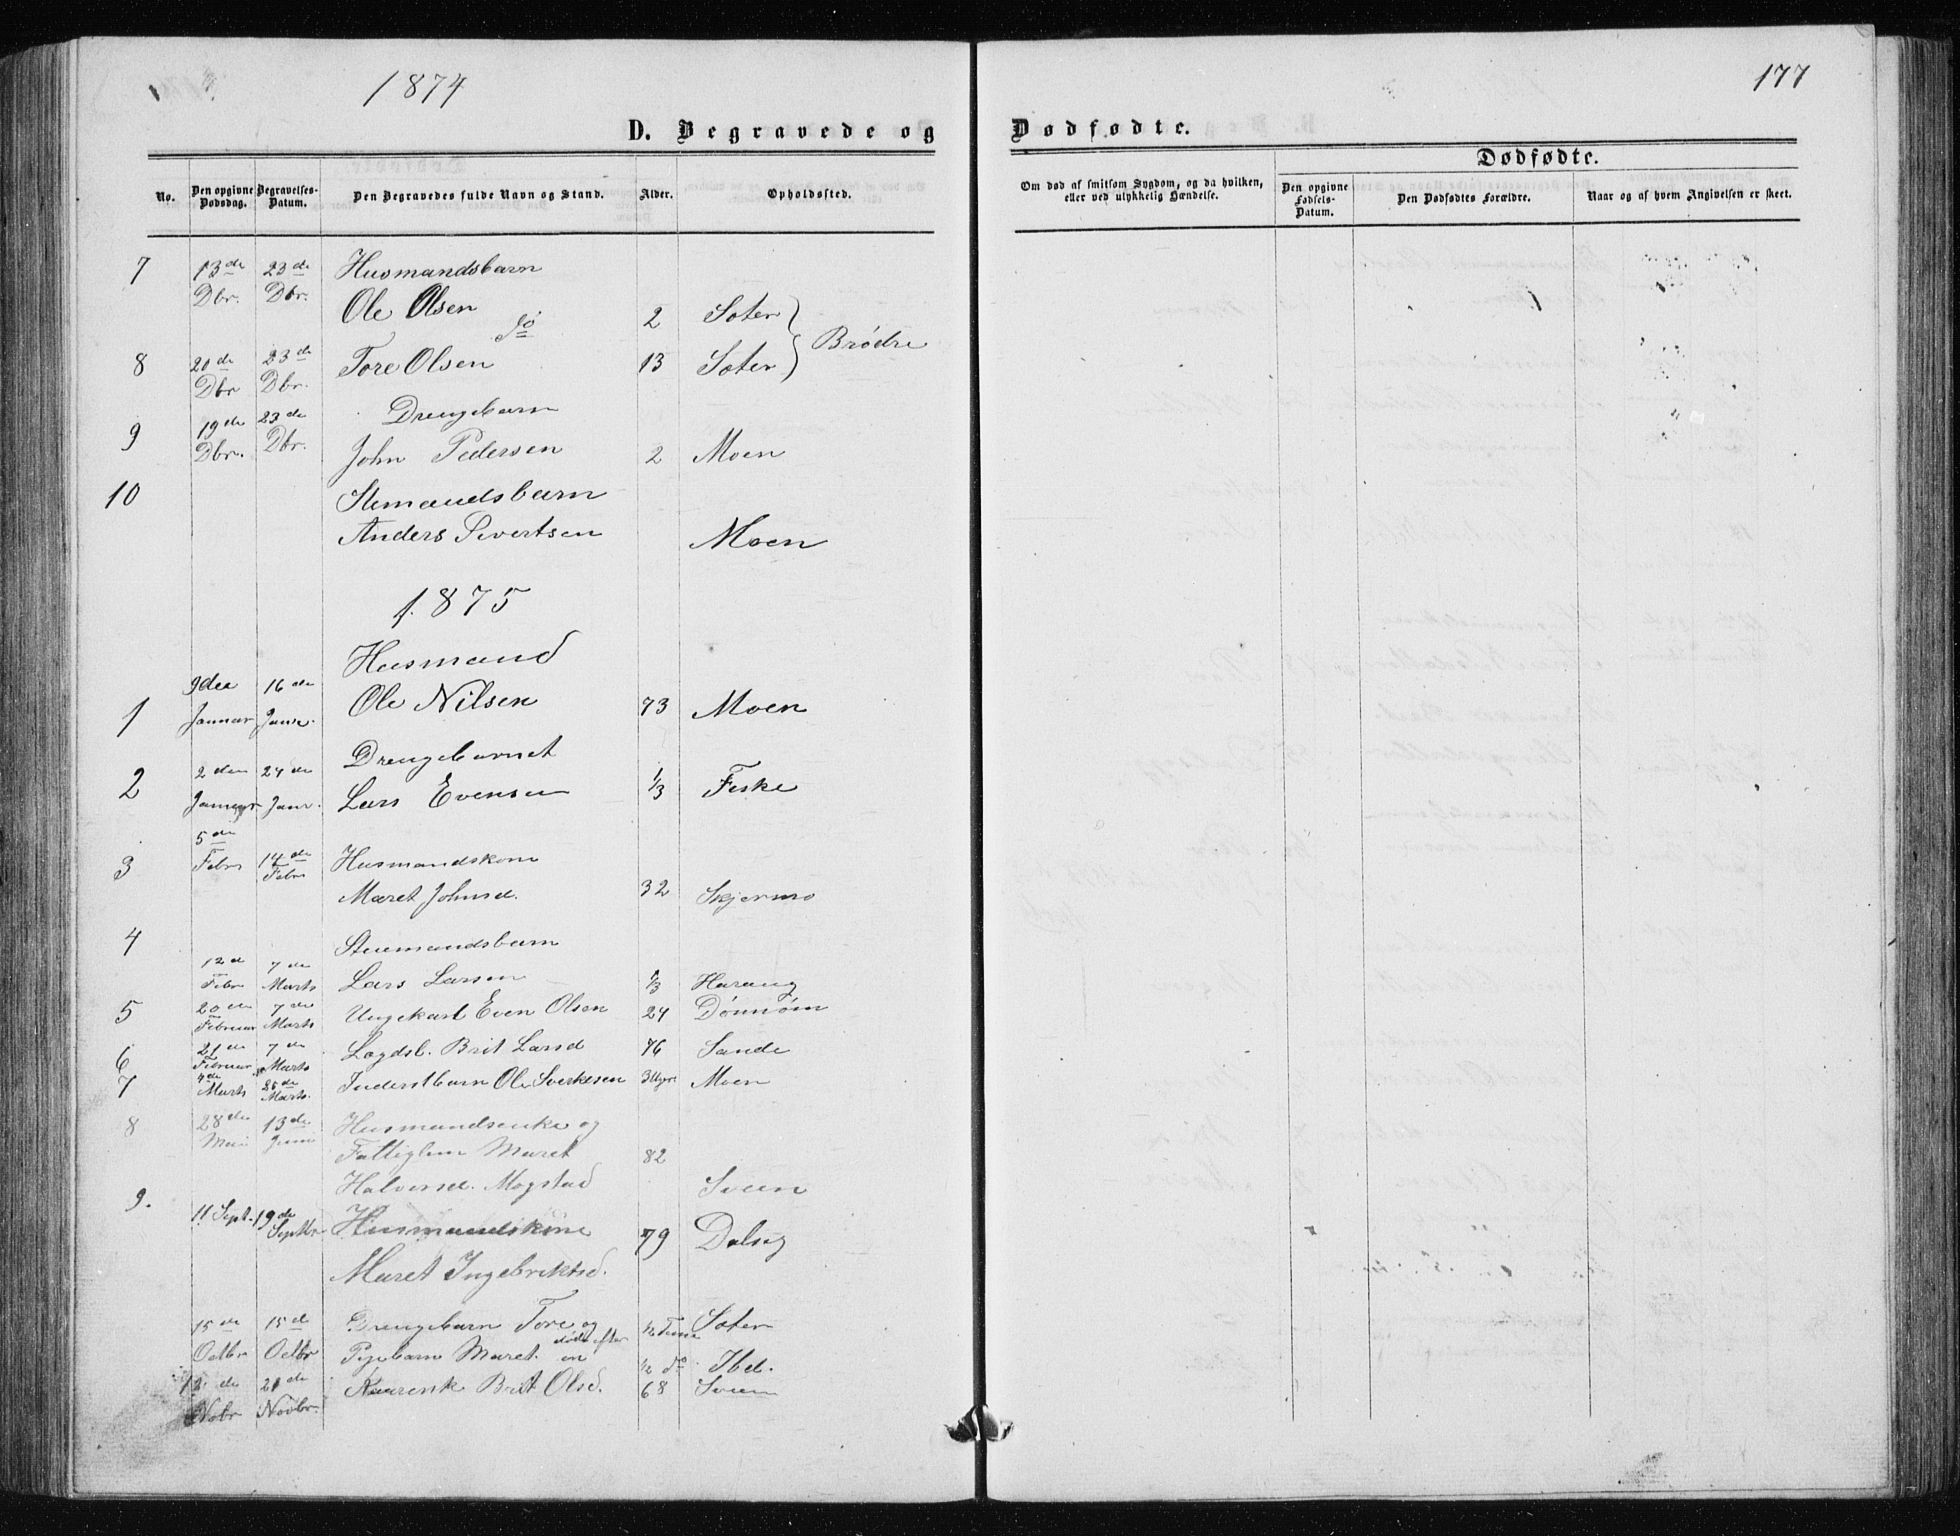 1874
177
D. Begravede og Dødfødte.
Dødfødte.
No.
Den opgivne Dødsdag.
Begravelses-Datum.
Den Begravedes fulde Navn og Stand.
Alder.
Opholdssted.
Om død af smitsom Sygdom, og da hvilken, eller ved ulykkelig Hændelse.
Den opgivne Fødsels-Datum.
Den Dødfødtes Forældre.
Naar og af hvem Angivelsen er skeet.
7 13de Dbr. 23de Dbr. Husmandsbarn
Ole Olsen 2 Soter
do
Brødre
8 20de Dbr 23de Dbr. Tore Olsen 13 Soter
9 19de Dbr. 23de Dbr. Drengebarn
John Pedersen 2 Moen
10
Anders Sivertsen Moen
1875
Husmand
1 9de Januar 16de Janr. Ole Nilsen 73 Moen
Drengebarnet
2 2den Januar 24de Janr. Lars Evensen 1/3 Feske
3 5de Febr 14de Febr Husmandskone
Maret Johnsd. 32 Skjermo
4
12de Febr 7de Marts Lars Larsen 1/3 Harang
5 20de Februar 7de Marts Ungekarl Even Olsen 24
6 21de Februar 7de Marts Lægdsl. Brit Larsd 76 Sande
7 4de Marts 25de Marts. Inderstbarn Ole Sverkesen Moen
8 28de Mai 13de Juni Husmandsenke og
Fattiglem Maret 82
Halvorsd. Mogstad Sveen
9. 11 Sept. 19de Septbr Husmandskone 79 Dalseg
Maret Ingebriktsd.
15de Octbr 15de Octbr Drengebarn Tore og 1/2 Time Soter
Pigebarn Maret. døde efter en 1/2 do Ibd.
20de Novbr. Brit Olsd. 68 Sveen
Nobr